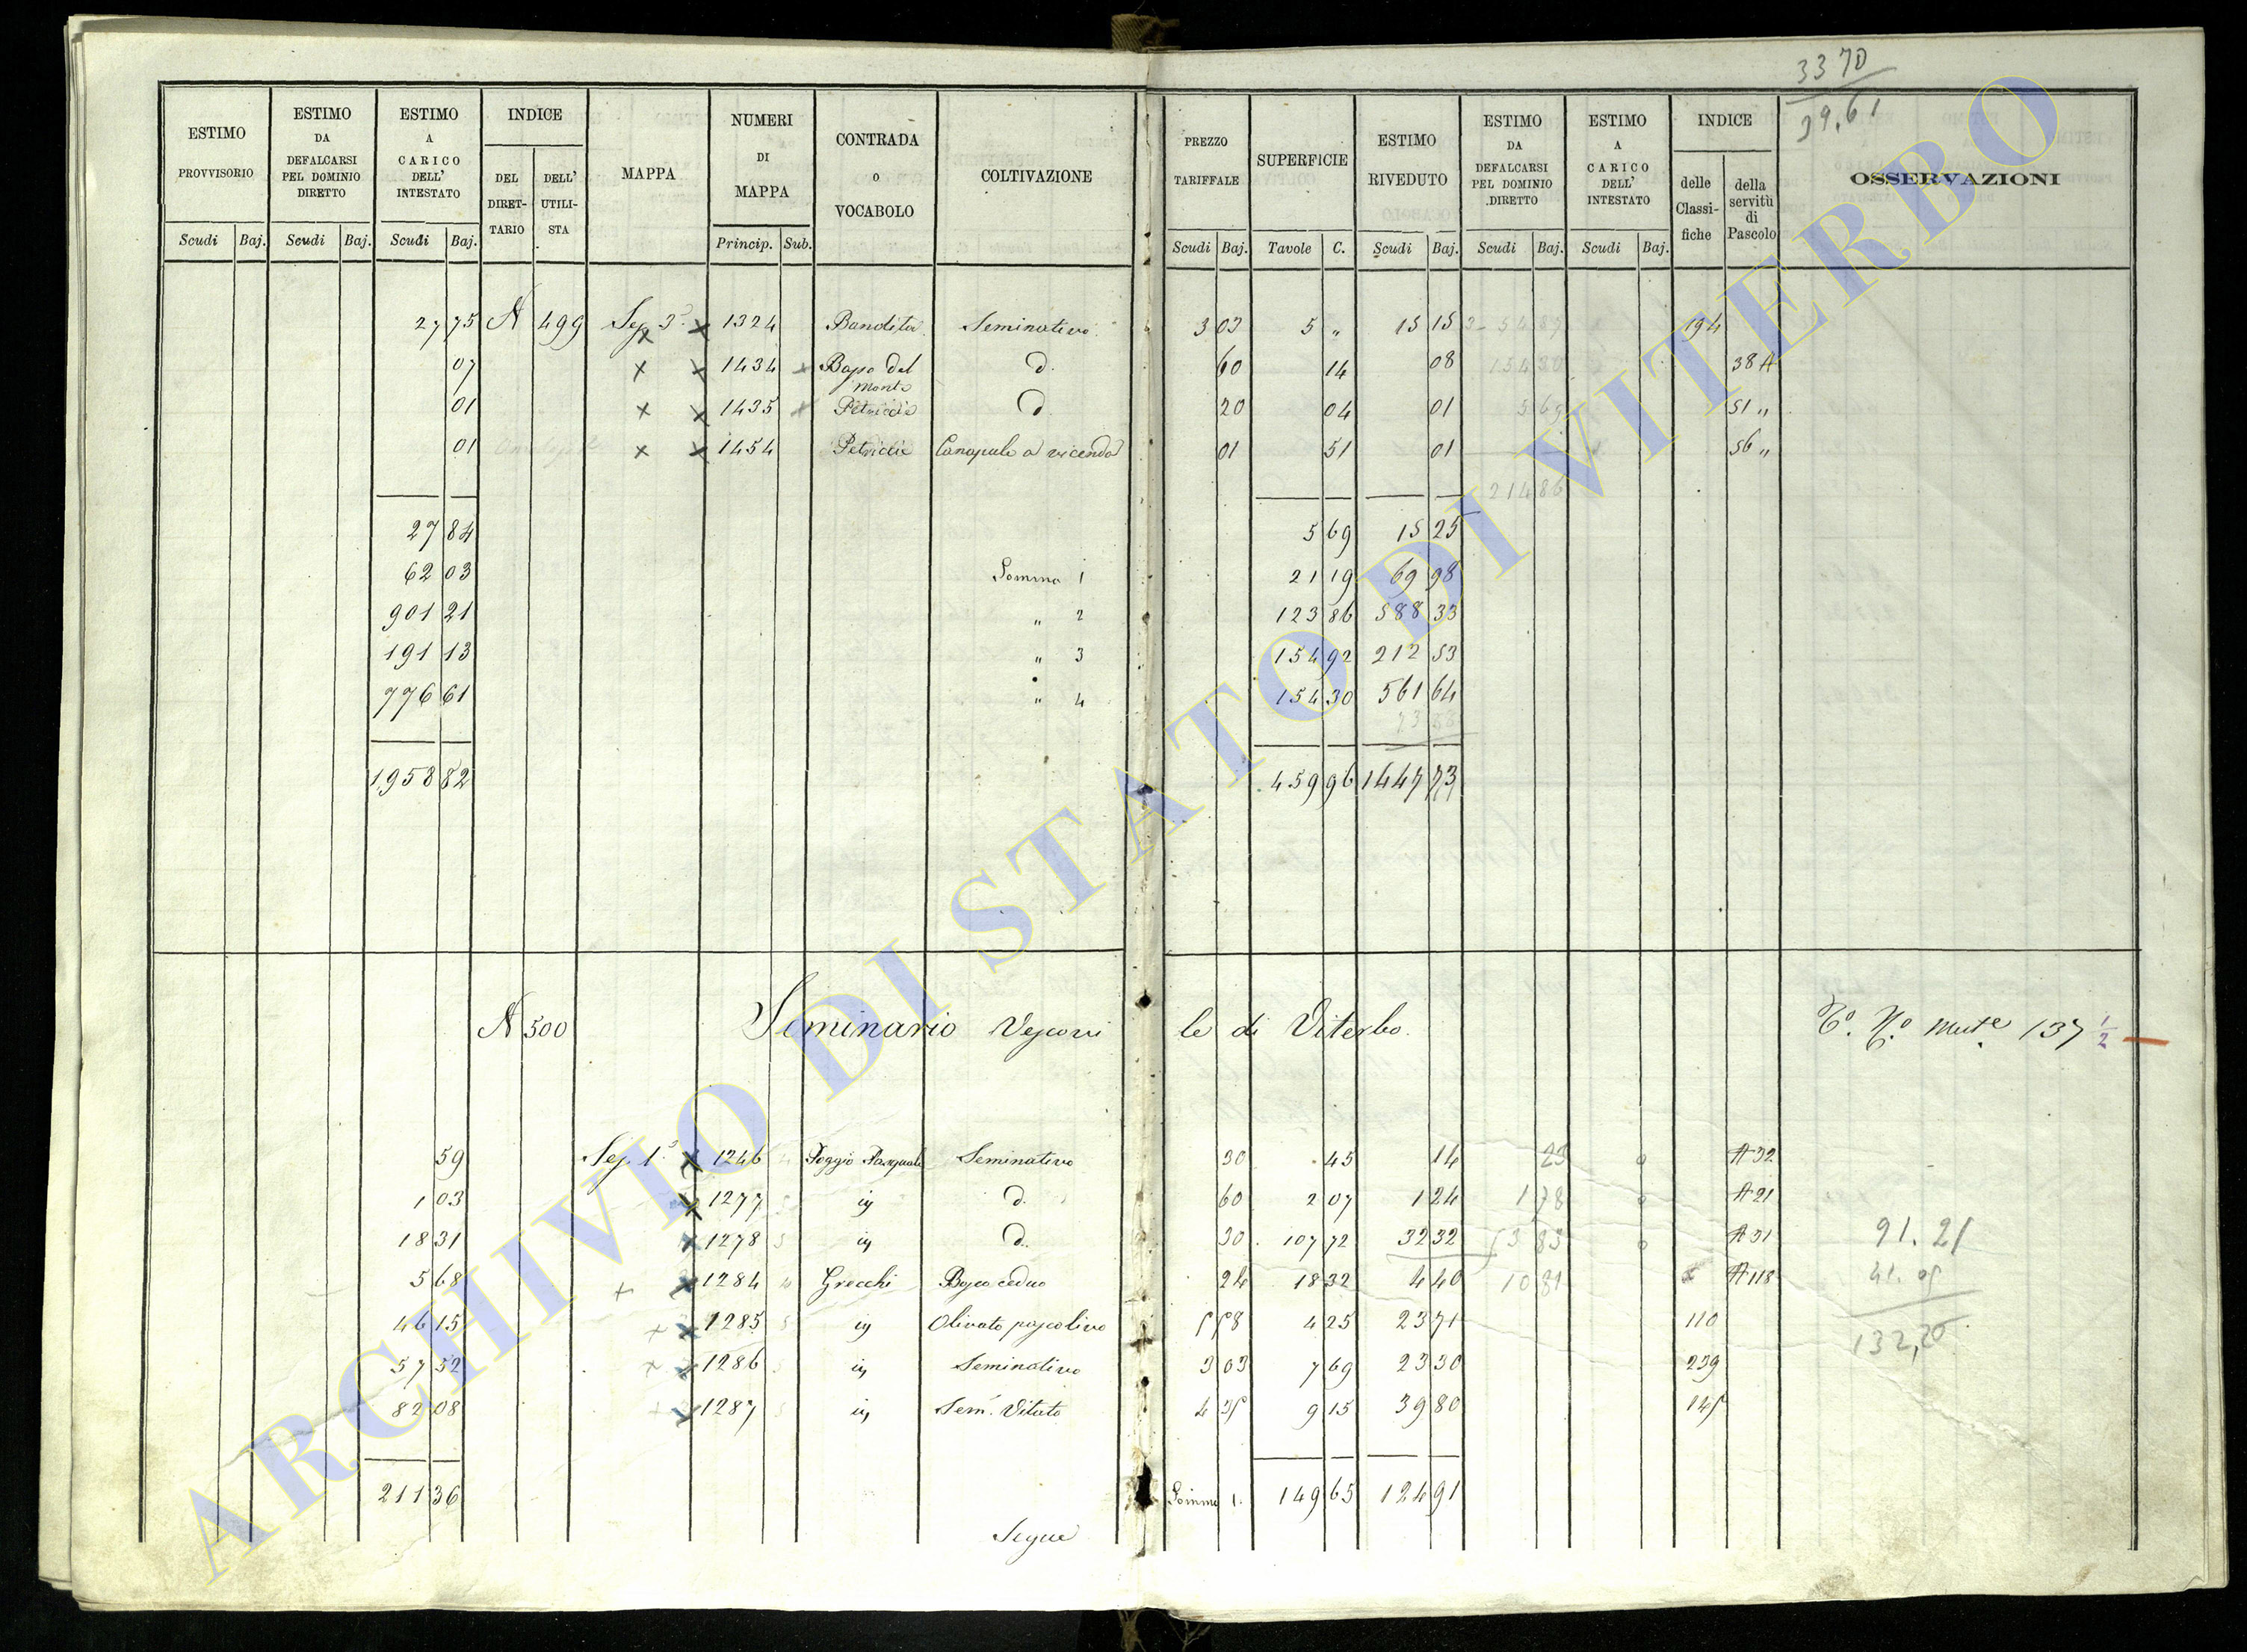 33 70
39.61
ESTIMO PROVVISORIO
ESTIMO DA DEFALCARSI PEL DOMINIO DIRETTO
ESTIMO A CARICO DELL' INTESTATO
INDICE
DEL DIRET-TARIO
DELL' UTILI-STA
MAPPA
NUMERI DI MAPPA
CONTRADA o VOCABOLO
COLTIVAZIONE
PREZZO TARIFFALE
SUPERFICIE
ESTIMO RIVEDUTO
ESTIMO DA DEFALCARSI PEL DOMINIO DIRETTO
ESTIMO A CARICO DELL' INTESTATO
INDICE
delle Classi-fiche
della servitù di Pascolo
OSSERVAZIONI
Scudi Baj. Scudi Baj. Scudi Baj. Princip. Sub. Scudi Baj. Tavole C. Scudi Baj. Scudi Baj. Scudi Baj.
27 75 N 499 Sez. 3ª x 1324 Bandita Seminativo 3 03 5 „ 15 15 194
07 x x 1434 Basso del Monte d. 60 14 08 38 A
01 x x 1435 Petriccie d 20 04 01 51 „
01 x x 1454 Petriccie Canapule a vicenda 01 51 01 56 „
214 86
27 84 5 69 15 25
62 03 Somma 1 21 19 69 98
901 21 „ 2 123 86 588 33
191 13 „ 3 154 92 212 53
776 61 „ 4 154 30 561 64
1958 82 459 96 1447 73
N 500 Seminario Vescovile di Viterbo. Cº. Nº. mutº 137 1/2
59 Sez. 1ª x 1246 Poggio Pasquale Seminativo 30 45 14 23 0 A 32
1 03 x 1277 id d. 60 2 07 1 24 1 78 0 A 21
18 31 x 1278 id d. 30 107 72 32 32 53 83 0 A 31 91.21
5 68 + x 1284 Grecchi Bosco ceduo 24 18 32 4 40 10 81 x A 118 41.05
46 15 + x 1285 id Olivato pascolivo 5 58 4 25 23 71 110 132,25
57 52 + x 1286 id Seminativo 3 03 7 69 23 30 239
82 08 + x 1287 id Sem. Vitato 4 35 9 15 39 80 145
211 36 Somma 1. 149 65 124 91
Segue
ARCHIVIO DI STATO DI VITERBO